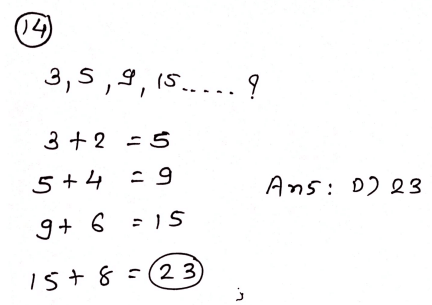 14
3, 5, 9, 15..... ?
3 + 2 = 5
5 + 4 = 9
9 + 6 = 15
15 + 8 = 23
Ans: D) 23